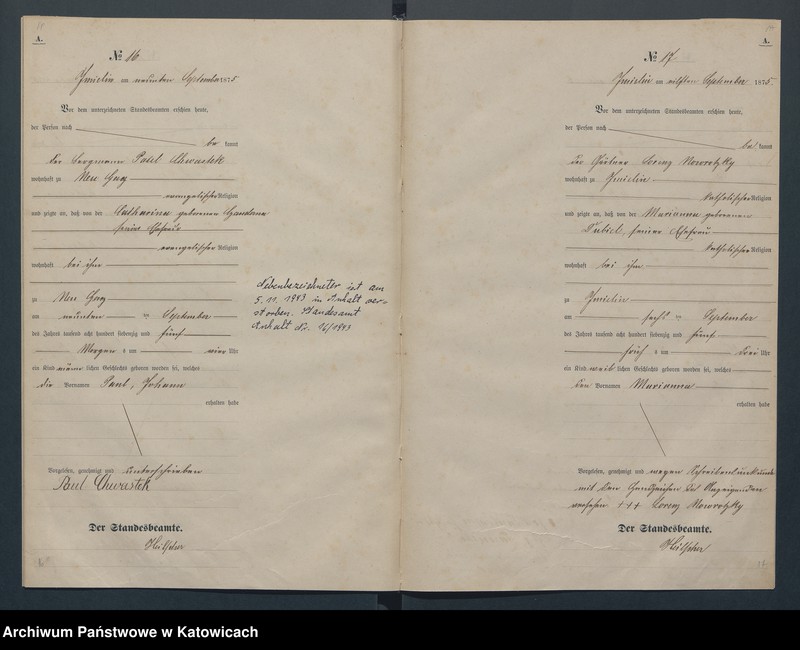 A.
№ 16
Imielin am neunten September 1875
Vor dem unterzeichneten Standesbeamten erschien heute,
der Person nach
be kannt
der Bergmann Paul Chwastek
wohnhaft zu Neu
evangelischer Religion
und zeigte an, daß von der Catharina geborenen
seiner Ehefrau
evangelischer Religion
wohnhaft bei ihm
zu Neu
am neunten September
des Jahres tausend acht hundert siebenzig und fünf
Morgen s um vier Uhr
ein Kind männ lichen Geschlechts geboren worden sei, welches
die Vornamen Paul, Johann
erhalten habe
Vorgelesen, genehmigt und unterschrieben
Paul Chwastek
Der Standesbeamte.
Nebenbezeichneter ist am
5. 11. 1943 in Anhalt ver-
storben. Standesamt
Anhalt Nr. 16/1943
A.
№ 17
Imielin am elften September 1875
Vor dem unterzeichneten Standesbeamten erschien heute,
der Person nach
be kannt
der Gärtner Lorenz Nowrotzky
wohnhaft zu Imielin
katholischer Religion
und zeigte an, daß von der Marianna geborenen
seiner Ehefrau
katholischer Religion
wohnhaft bei ihm
zu Imielin
am September
des Jahres tausend acht hundert siebenzig und fünf
früh s um drei Uhr
ein Kind weib lichen Geschlechts geboren worden sei, welches
den Vornamen Marianna
erhalten habe
Vorgelesen, genehmigt und wegen Schreibensunkunde
mit den Handzeichen des Anzeigenden
versehen +++ Lorenz Nowrotzky
Der Standesbeamte.
Archiwum Państwowe w Katowicach